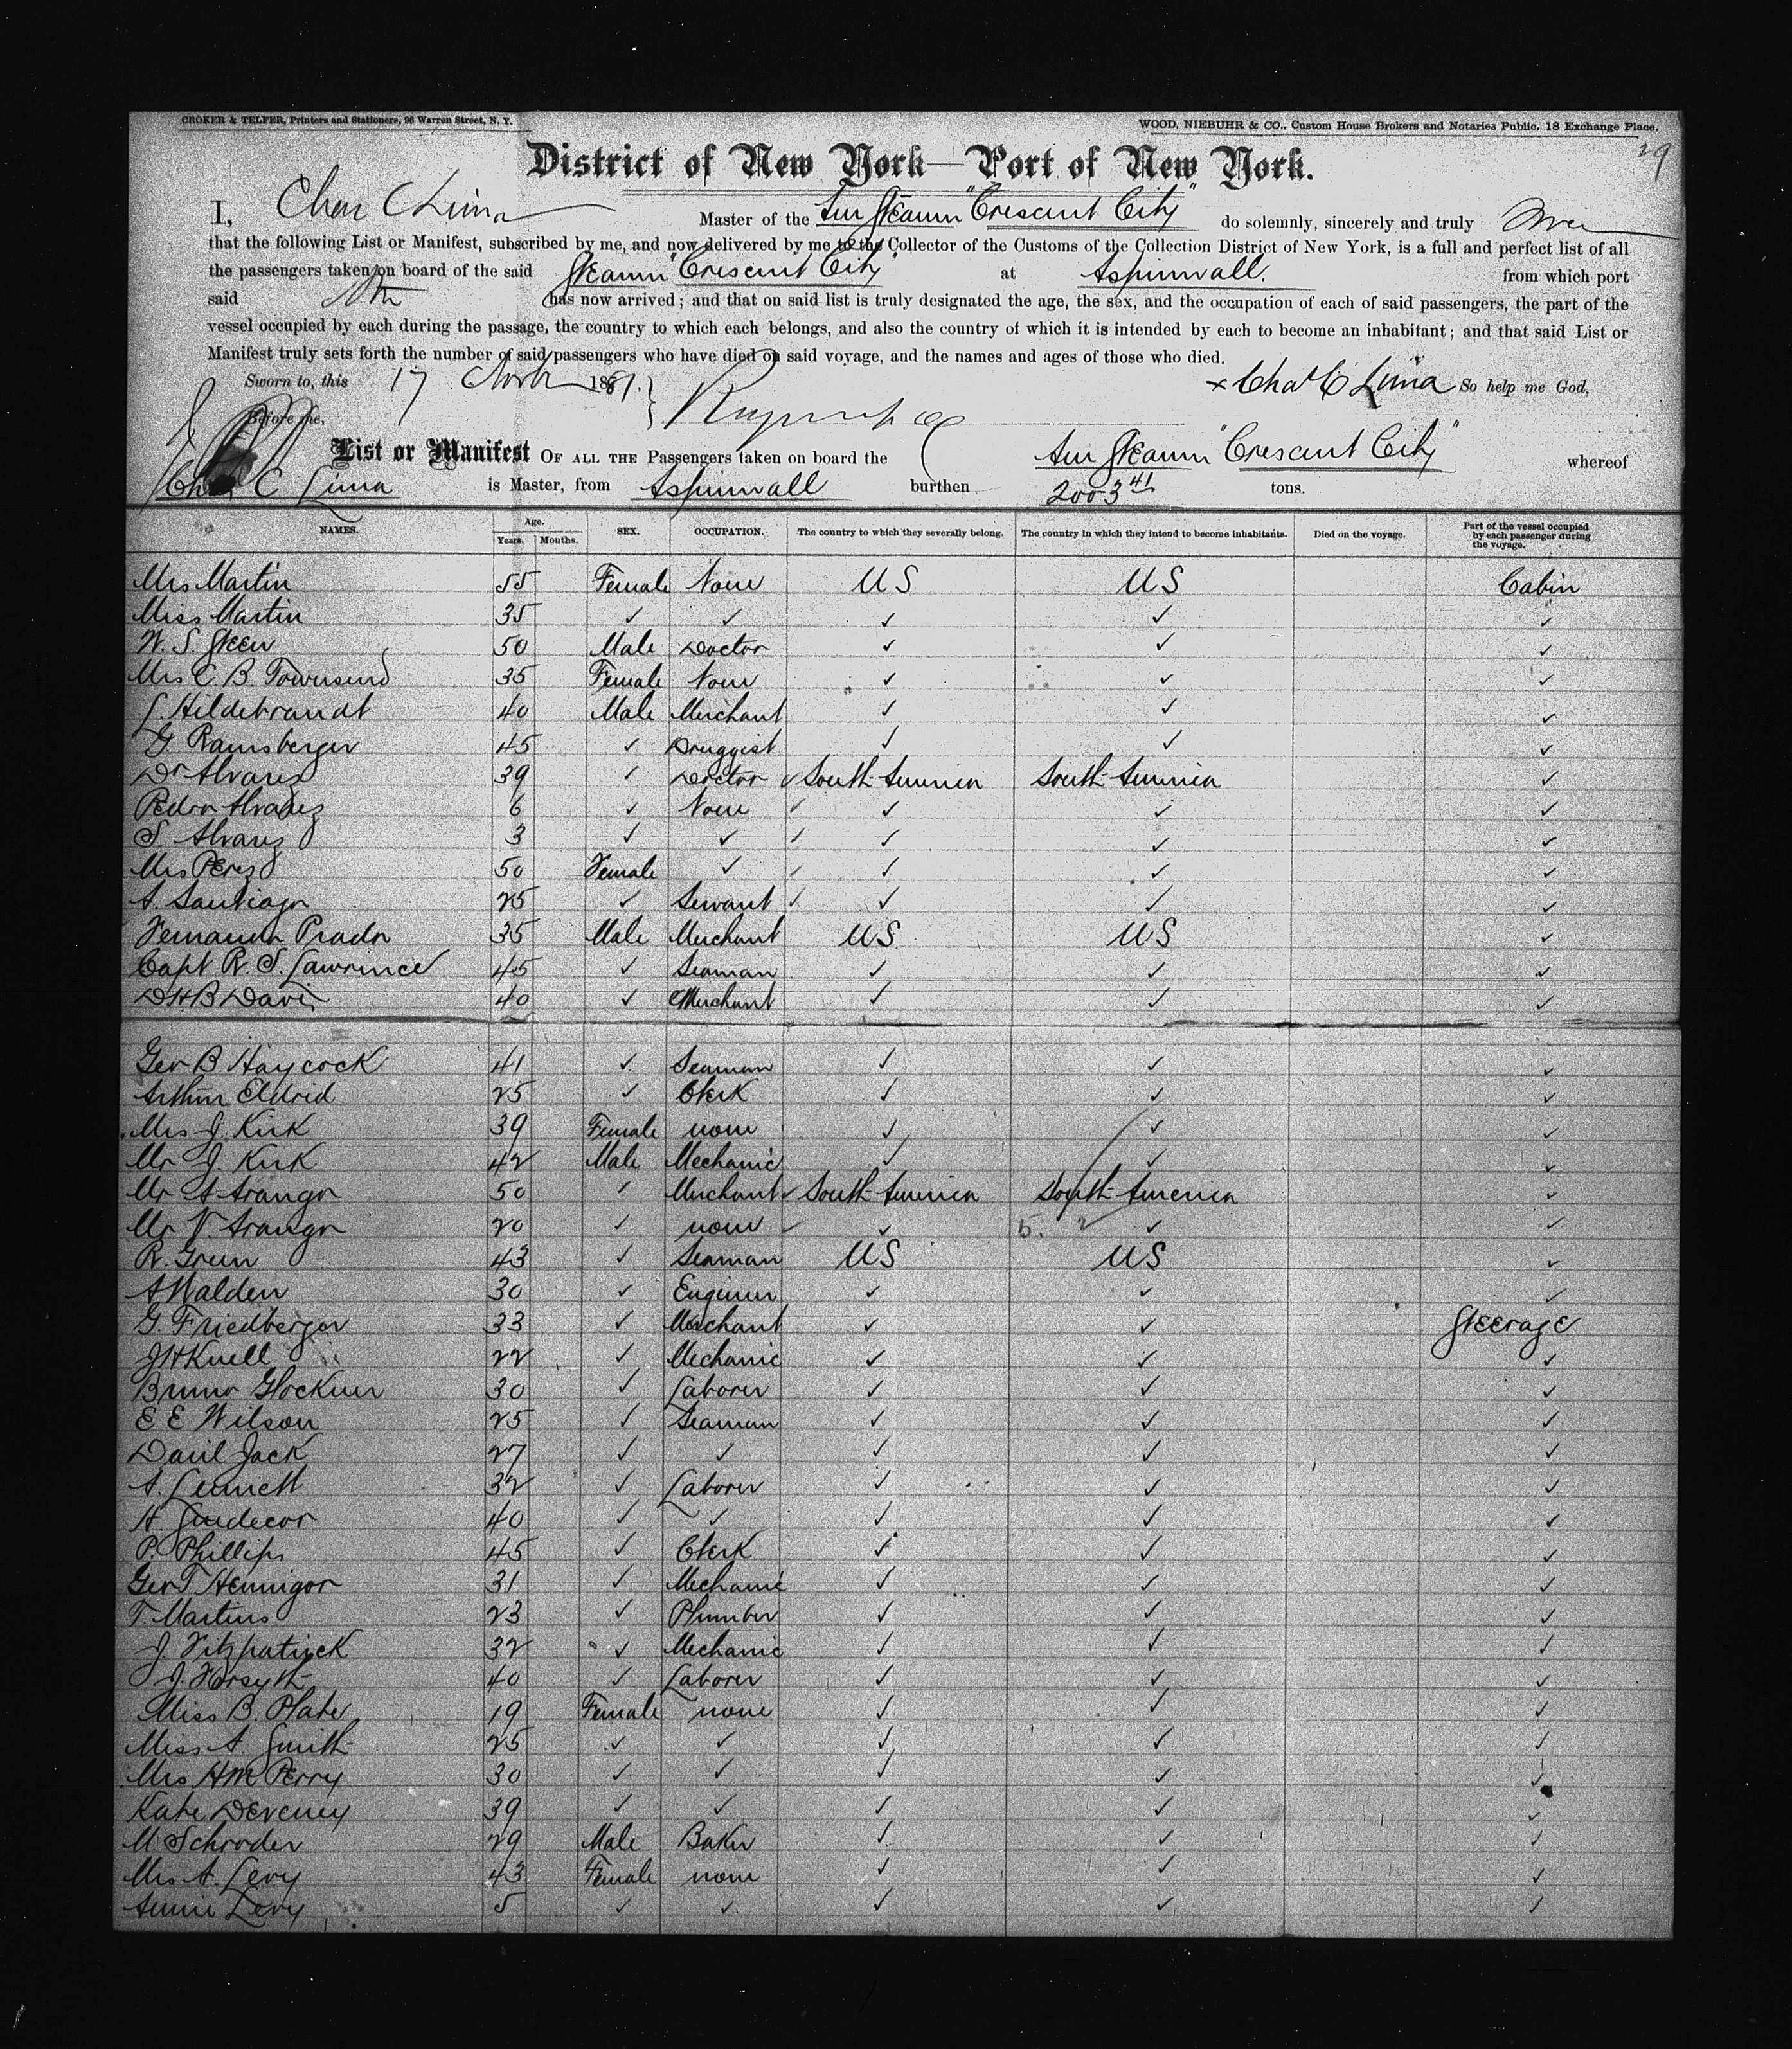 CROKER & TELFER, Printers and Stationers, 96 Warren Street, N. Y.
WOOD, NIEBUHR & CO., Custom House Brokers and Notaries Public, 18 Exchange Place.
29
District of New York—Port of New York.
I, Chas C Lima Master of the Am Steamr "Crescent City" do solemnly, sincerely and truly Swear
that the following List or Manifest, subscribed by me, and now delivered by me to the Collector of the Customs of the Collection District of New York, is a full and perfect list of all
the passengers taken on board of the said Steamr "Crescent City" at Aspinwall. from which port
said has now arrived; and that on said list is truly designated the age, the sex, and the occupation of each of said passengers, the part of the
vessel occupied by each during the passage, the country to which each belongs, and also the country of which it is intended by each to become an inhabitant; and that said List or
Manifest truly sets forth the number of said passengers who have died on said voyage, and the names and ages of those who died.
Sworn to, this 17 1881. × Chas C Lima So help me God,
Before me,
List or Manifest OF ALL THE Passengers taken on board the Am Steamr "Crescent City" whereof
Chas C Lima is Master, from Aspinwall burthen 2003 41 tons.
NAMES. Age. Years. Months. SEX. OCCUPATION. The country to which they severally belong. The country in which they intend to become inhabitants. Died on the voyage. Part of the vessel occupied by each passenger during the voyage.
Mrs Martin 55 Female None US US Cabin
Miss Martin 35 ✓ ✓ ✓ ✓ ✓
W. S. Steen 50 Male Doctor ✓ ✓ ✓
Mrs C. B. Townsend 35 Female None ✓ ✓ ✓
L. Hildebrandt 40 Male Merchant ✓ ✓ ✓
G. Ramsberger 45 ✓ Druggist ✓ ✓ ✓
Dr Alvarez 39 ✓ Doctor ✓ South America South America ✓
Pedro Alvarez 6 ✓ None ✓ ✓ ✓ ✓
S. Alvarez 3 ✓ ✓ ✓ ✓ ✓ ✓
Mrs Perez 50 Female ✓ ✓ ✓ ✓ ✓
A. Santiago 25 ✓ Servant ✓ ✓ ✓ ✓
Fernando Prado 35 Male Merchant US US ✓
Capt R. S. Lawrince 45 ✓ Seaman ✓ ✓ ✓
D H B Davis 40 ✓ Merchant ✓ ✓ ✓
Geo B Haycock 41 ✓ Seaman ✓ ✓ ✓
Arthur Eldrid 25 ✓ Clerk ✓ ✓ ✓
Mrs J. Kirk 39 Female none ✓ ✓ ✓
Mr J. Kirk 42 Male Mechanic ✓ ✓ ✓
Mr A Arango 50 ✓ Merchant ✓ South America South America ✓
Mr V. Arango 20 ✓ none ✓ ✓ 5. 2 ✓ ✓
R. Green 43 ✓ Seaman US US ✓
A Walden 30 ✓ Engineer ✓ ✓ ✓
G. Friedberger 33 ✓ Merchant ✓ ✓ Steerage
J H Knell 22 ✓ Mechanic ✓ ✓ ✓
Bruno Glockner 30 ✓ Laborer ✓ ✓ ✓
E E Wilson 25 ✓ Seaman ✓ ✓ ✓
Danl Jack 27 ✓ ✓ ✓ ✓ ✓
A. 32 ✓ Laborer ✓ ✓ ✓
H. 40 ✓ ✓ ✓ ✓ ✓
P. Phillips 45 ✓ Clerk ✓ ✓ ✓
Geo T Hennigar 31 ✓ Mechanic ✓ ✓ ✓
T. Martins 23 ✓ Plumber ✓ ✓ ✓
J. Fitzpatrick 32 ✓ Mechanic ✓ ✓ ✓
J. Forsyth 40 ✓ Laborer ✓ ✓ ✓
Miss B. Plate 19 Female none ✓ ✓ ✓
Miss A. Smith 25 ✓ ✓ ✓ ✓ ✓
Mrs H M Perry 30 ✓ ✓ ✓ ✓ ✓
Kate Deveney 39 ✓ ✓ ✓ ✓ ✓
M Schroder 29 Male Baker ✓ ✓ ✓
Mrs A. Levy 43 Female none ✓ ✓ ✓
Annie Levy 5 ✓ ✓ ✓ ✓ ✓